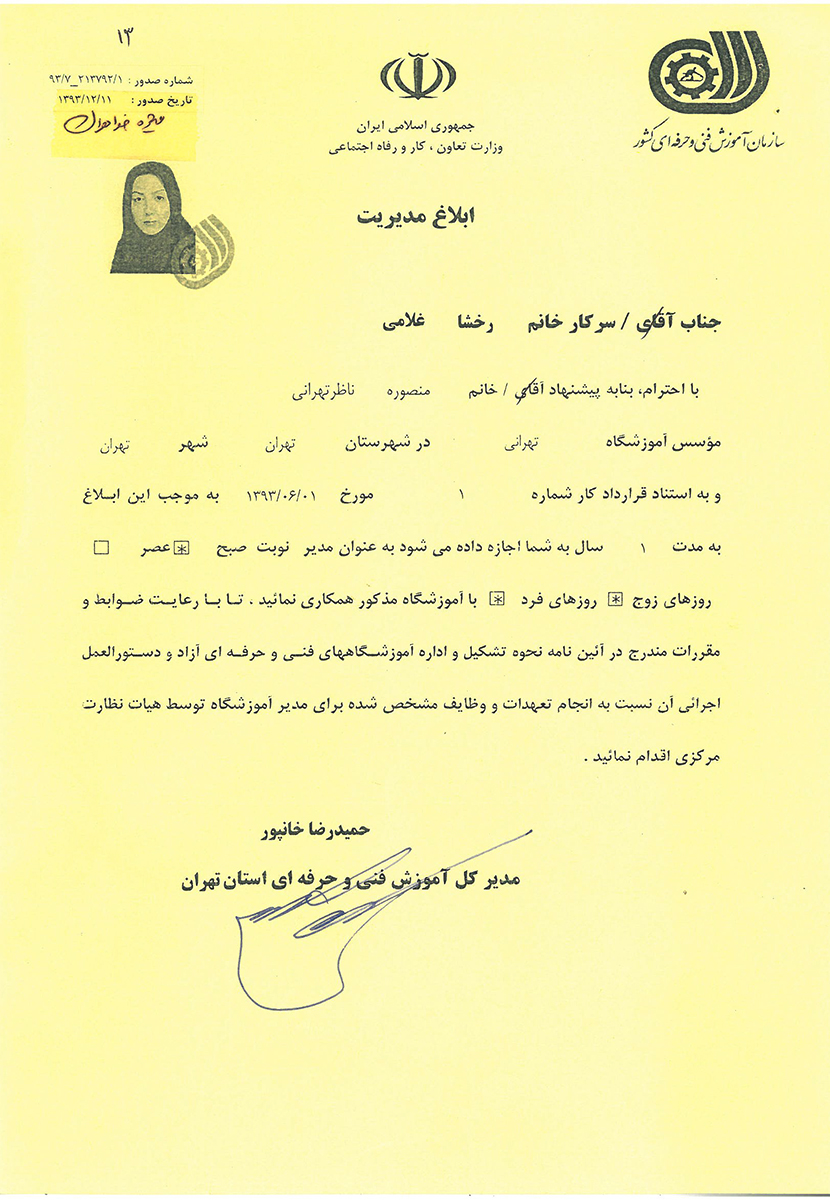 ۱۳
شماره صدور : ۹۳/۷_۲۱۳۷۹۲/۱
تاریخ صدور : ۱۳۹۳/۱۲/۱۱
جمهوری اسلامی ایران
وزارت تعاون ، کار و رفاه اجتماعی
سازمان آموزش فنی و حرفه ای کشور
ابلاغ مدیریت
جناب آقای / سرکار خانم رخشا غلامی
با احترام، بنابه پیشنهاد آقای / خانم منصوره ناظرتهرانی
مؤسس آموزشگاه تهرانی در شهرستان تهران شهر تهران
و به استناد قرارداد کار شماره ۱ مورخ ۱۳۹۳/۰۶/۰۱ به موجب این ابلاغ
به مدت ۱ سال به شما اجازه داده می شود به عنوان مدیر نوبت صبح عصر
روزهای زوج روزهای فرد با آموزشگاه مذکور همکاری نمائید . تا با رعایت ضوابط و
مقررات مندرج در آئین نامه نحوه تشکیل و اداره آموزشگاههای فنی و حرفه ای آزاد و دستورالعمل
اجرائی آن نسبت به انجام تعهدات و وظایف مشخص شده برای مدیر آموزشگاه توسط هیات نظارت
مرکزی اقدام نمائید .
حمیدرضا خانپور
مدیر کل آموزش فنی و حرفه ای استان تهران